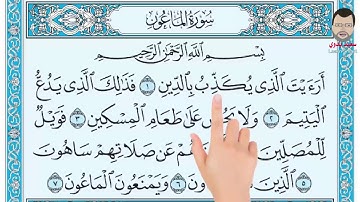 سُورَةُ المَاعُونِ
بِسْمِ اللَّهِ الرَّحْمَٰنِ الرَّحِيمِ
أَرَءَيْتَ الَّذِي يُكَذِّبُ بِالدِّينِ ١ فَذَٰلِكَ الَّذِي يَدُعُّ
الْيَتِيمَ ٢ وَلَا يَحُضُّ عَلَىٰ طَعَامِ الْمِسْكِينِ ٣ فَوَيْلٌ
لِّلْمُصَلِّينَ هُمْ عَن صَلَاتِهِمْ سَاهُونَ
٥ الَّذِينَ ونَ ٦ وَيَمْنَعُونَ الْمَاعُونَ ٧